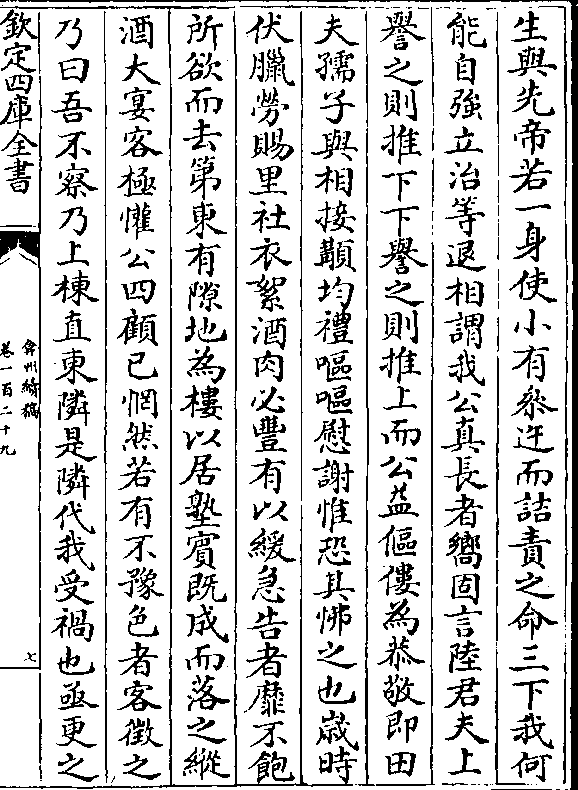 生與先帝若一身使小有參迕而詰責之命三下我何
能自強立治等退相謂我公真長者嚮固言陸君夫上
譽之則推下下譽之則推上而公益傴僂為恭敬即田
夫孺子與相接顜均禮嘔嘔慰謝惟恐其怫之也嵗時
伏臘勞賜里社衣絮酒肉必豐有以緩急告者靡不飽
所欲而去第東有隙地為樓以居塾賓既成而落之縱
酒大宴客極懽公四顧已惘然若有不豫色者客徵之
乃曰吾不察乃上棟直東隣是隣代我受禍也亟更之
欽定四庫全書
弇州續稿
卷一百二十九
七